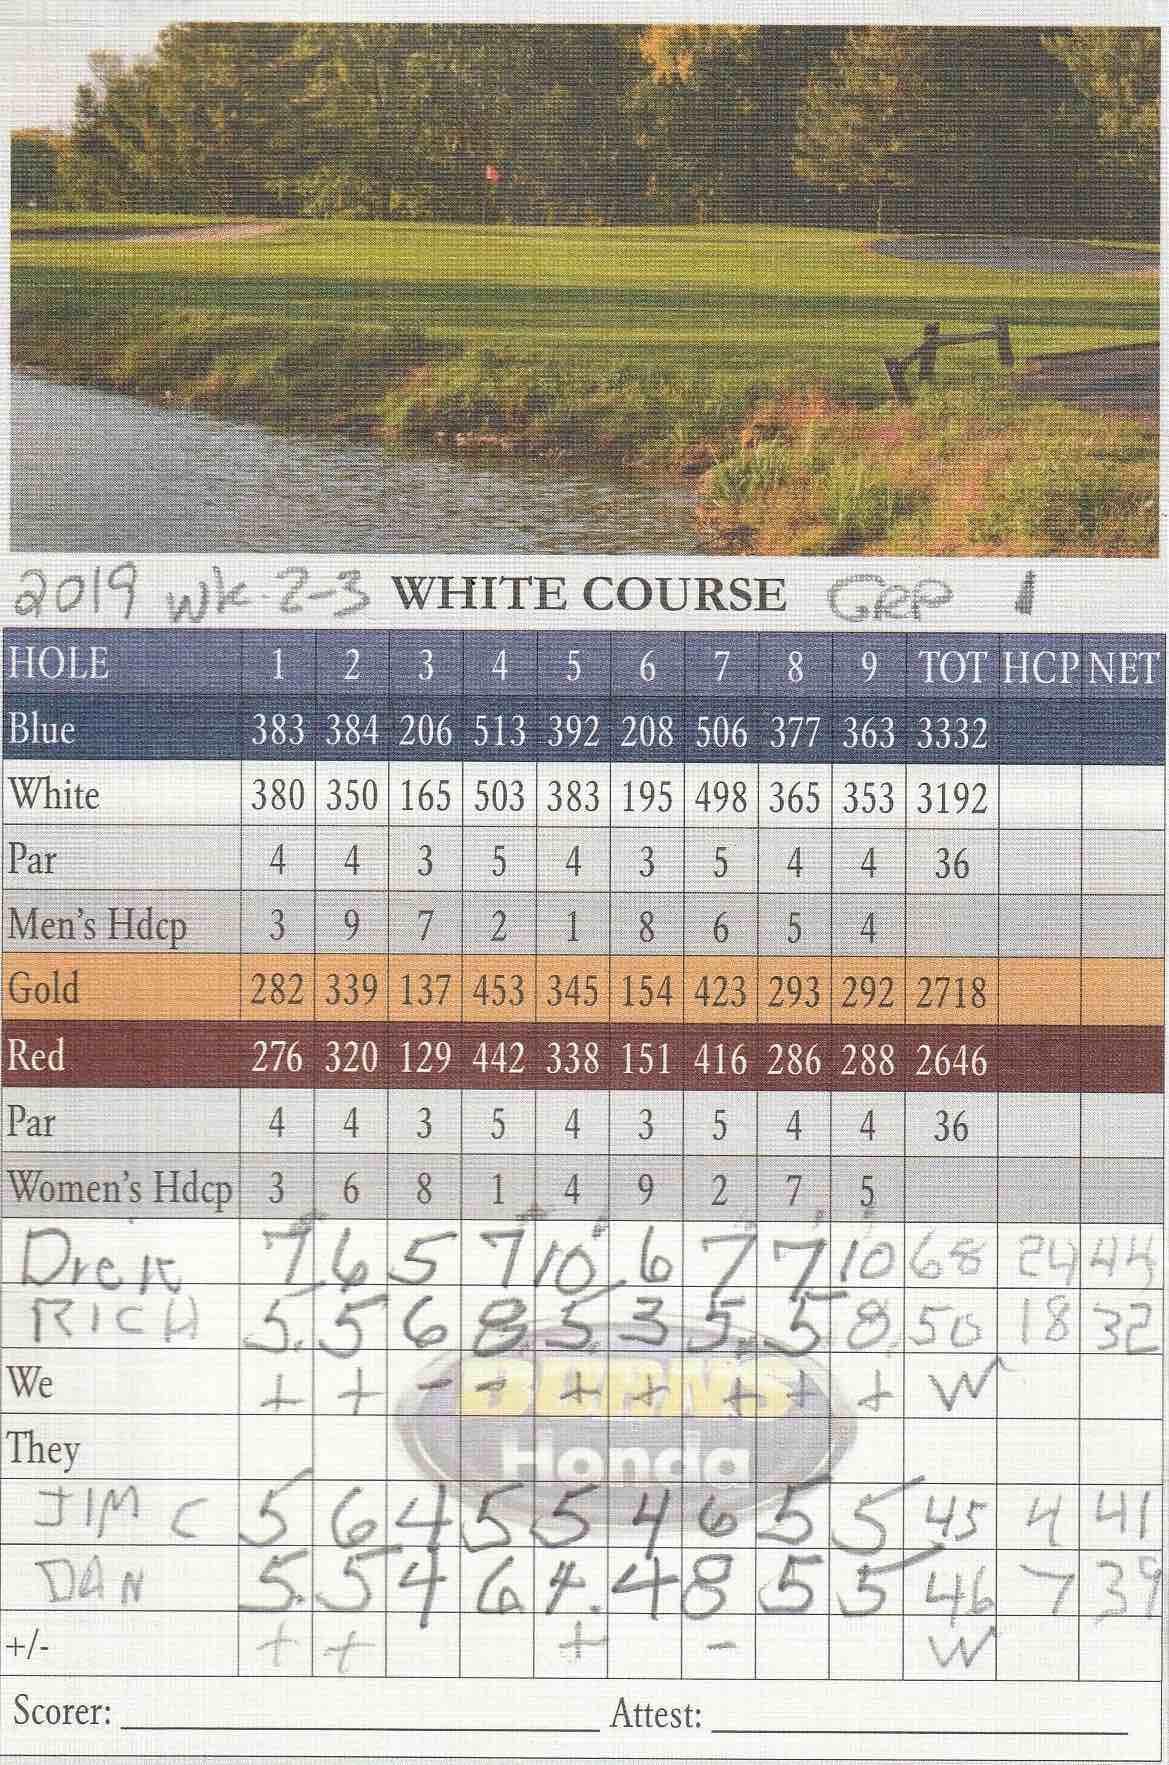 2019 WK-2-3 WHITE COURSE GRP 1
HOLE 1 2 3 4 5 6 7 8 9 TOT HCP NET
Blue 383 384 206 513 392 208 506 377 363 3332
White 380 350 165 503 383 195 498 365 353 3192
Par 4 4 3 5 4 3 5 4 4 36
Men's Hdcp 3 9 7 2 1 8 6 5 4
Gold 282 339 137 453 345 154 423 293 292 2718
Red 276 320 129 442 338 151 416 286 288 2646
Par 4 4 3 5 4 3 5 4 4 36
Women's Hdcp 3 6 8 1 4 9 2 7 5
7 6 5 7 10 6 7 7 10 68 24 44
RICH 5. 5 6 8 5. 3 5. 5 8. 50 18 32
We + + - - + + + + + W
BERNS
Honda
They
JIM C 5 6 4 5 5 4 6 5 5 45 4 41
DAN 5. 5 4 6 4. 4 8 5 5 46 7 39
+/- + + + - W
Scorer: Attest: